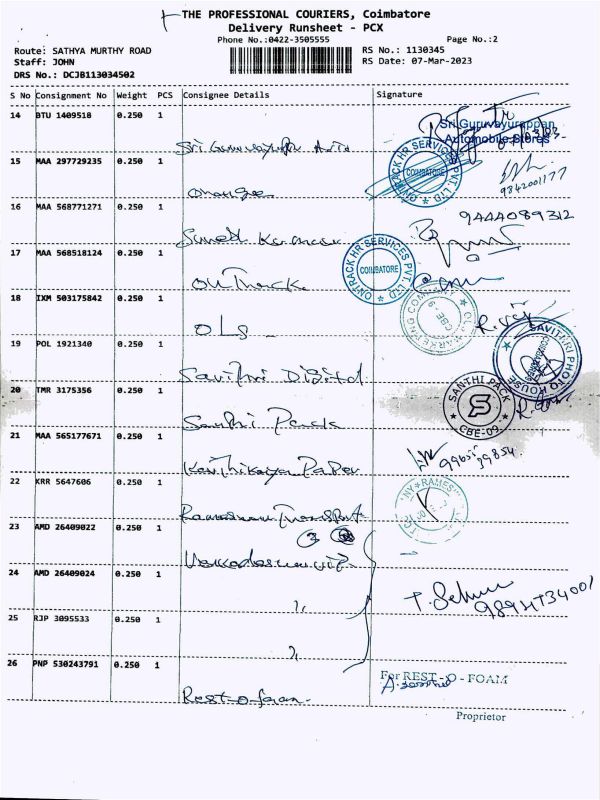 THE PROFESSIONAL COURIERS, Coimbatore
Delivery Runsheet - PCX
Phone No.:0422-3505555
Page No.:2
Route: SATHYA MURTHY ROAD
Staff: JOHN
DRS No.: DCJB113034502
RS No.: 1130345
RS Date: 07-Mar-2023
S No Consignment No Weight PCS Consignee Details Signature
14 BTU 1409518 0.250 1
Sri Guruvayurappan
Automobile Stores
Sri Guruvayur Auto
15 MAA 297729235 0.250 1
ONTRACK HR SERVICES PVT. LTD
COIMBATORE
9842001177
16 MAA 568771271 0.250 1
9444089312
Suresh Kumar
17 MAA 568518124 0.250 1
ONTRACK HR SERVICES PVT. LTD
COIMBATORE
On Track
18 IXM 503175842 0.250 1
MARKETING COMPANY
CBE-9
OLS
19 POL 1921340 0.250 1
SAVITHRI PHOTO HOUSE
Savithri Digital
20 TMR 3175356 0.250 1
SANTHI PACK
CBE-09
Santhi Pack
21 MAA 565177671 0.250 1
Karthikeya Paper
22 KRR 5647606 0.250 1
Rameswari Transport
23 AMD 26409022 0.250 1
3
24 AMD 26409024 0.250 1
"
25 RJP 3095533 0.250 1
"
26 PNP 530243791 0.250 1
For REST - O - FOAM
Rest-o-foam
Proprietor